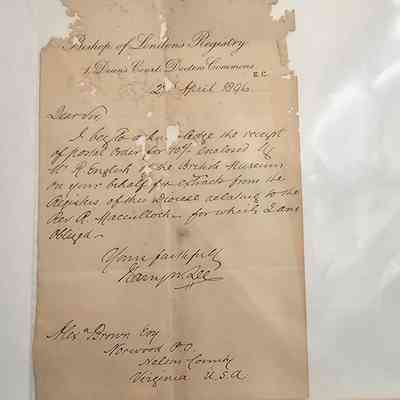 Bishop of London's Registry
1 Deans Court, Doctors Commons.
E.C.
2 April 1896
Dear Sir
I beg to acknowledge the receipt
of postal order for 10/- enclosed by
Mr A. English of the British Museum
on your behalf for extracts from the
Registers of this Diocese relating to the
Rev R. Macculloch for which I am
obliged -
Yours faithfully
Harry W. Lee
Alexr Brown Esq
Norwood P.O.
Nelson County
Virginia U.S.A